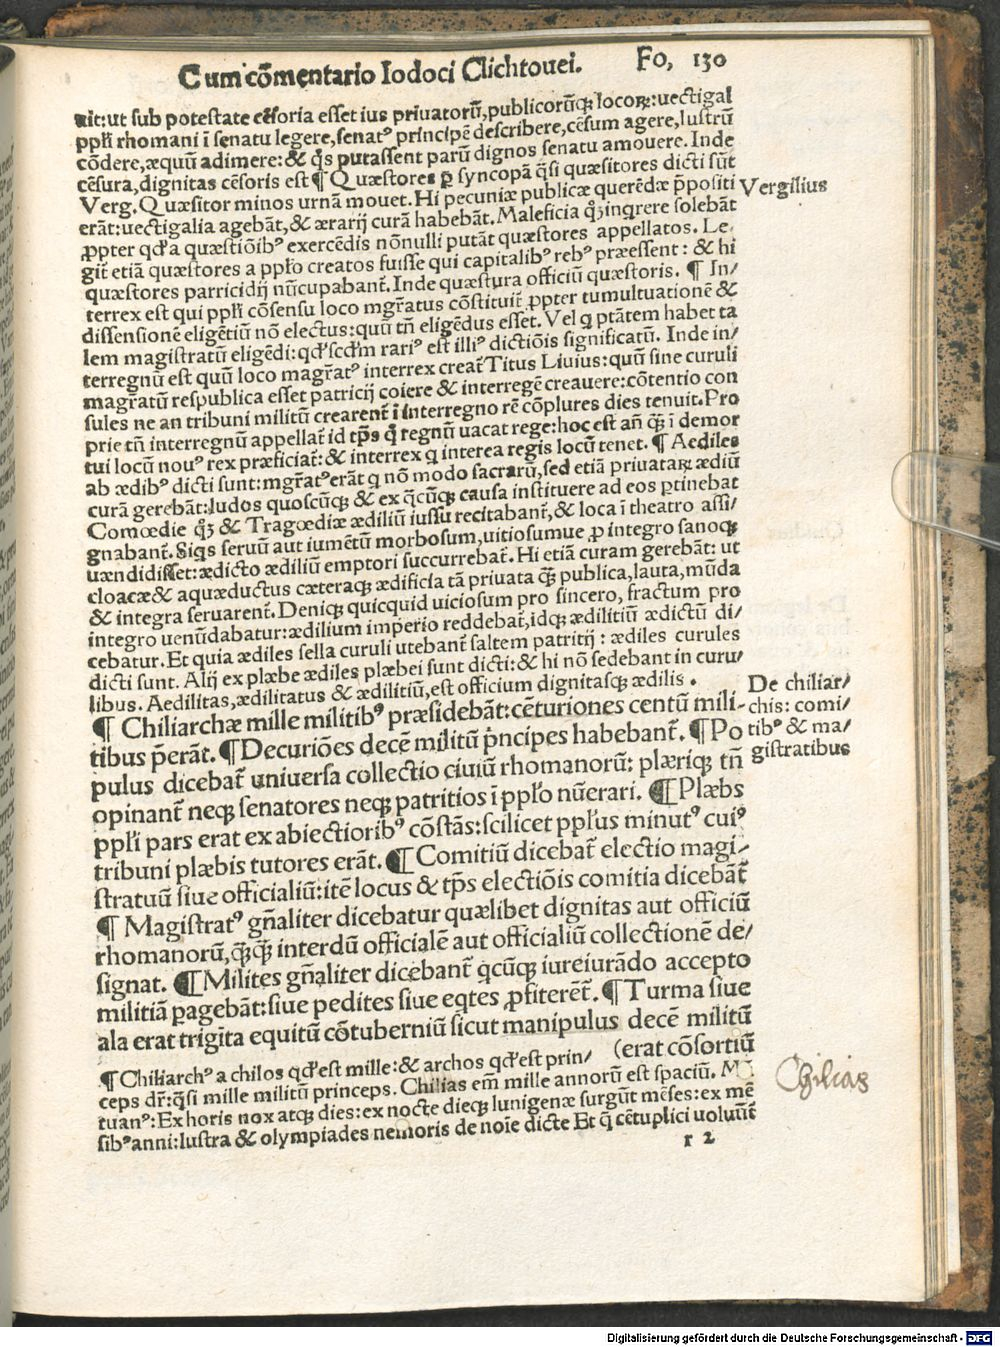 Cum cōmentario Iodoci Clichtouei. Fo, 130
xit:ut sub potestate cēsoria esset ius priuatorū,publicorūq; locoꝝ:uectigal
ppl'i rhomani ī senatu legere,senatꝰ principē describere,cēsum agere,lustrū
cōdere,æquū adimere:& q̄s putassent parū dignos senatu amouere. Inde
cēsura,dignitas cēsoris est ¶ Quæstores ꝑ syncopā q̄si quæsitores dicti sūt
Verg. Quæsitor minos urnā mouet. Hi pecuniæ publicæ querēdæ p̄positi
Vergilius
erāt:uectigalia agebāt,& ærarij curā habebāt. Maleficia qꝫ inqrere solebāt
ꝓpter qd' a quæstiōibꝰ exercēdis nōnulli putāt quæstores appellatos. Le,
git̄ etiā quæstores a ppl'o creatos fuisse qui capitalibꝰ rebꝰ præessent: & hi
quæstores parricidij nūcupabant̄. Inde quæstura officiū quæstoris. ¶ In/
terrex est qui ppl'i cōsensu loco mgr̄atus cōstituit̄ ꝓpter tumultuationē &
dissensionē eligētiū nō electus:quū tn̄ eligēdus esset. Vel q ptātem habet ta
lem magistratū eligēdi:qd' scd'm rariꝰ est illiꝰ dictiōis significatū. Inde in/
terregnū est quū loco magr̄atꝰ interrex creat̄ Titus Liuius:quū sine curuli
magr̄atū respublica esset patricij coiere & interregē creauere:cōtentio con
sules ne an tribuni militū crearent̄ ī interregno rē cōplures dies tenuit. Pro
prie tn̄ interregnū appellat̄ id tp̄s q̄ regnū uacat rege:hoc est an̄ q̄ꝫ ī demor
tui locū nouꝰ rex præficiat̄:& interrex q interea regis locū tenet. ¶ Aediles
ab ædibꝰ dicti sunt:mgr̄atꝰ erāt q nō modo sacrarū,sed etiā priuataꝝ ædiū
curā gerebāt:ludos quoscūq; & ex q̄cūq; causa instituere ad eos ꝑtinebat
Comœdie qꝫ & Tragœdiæ ædiliū iussu recitabant̄,& loca ī theatro assi/
gnabant̄. Siqs seruū aut iumētū morbosum,uitiosumue ꝓ integro sanoq;
uændidisset:ædicto ædiliū emptori succurrebat̄. Hi etiā curam gerebāt: ut
cloacæ & aquæductus cæteraq; ædificia tā priuata q̄ꝫ publica,lauta,mūda
& integra seruarent̄. Deniq; quicquid uiciosum pro sincero, fractum pro
integro uenūdabatur:ædilium imperio reddebat̄,idq; ædilitiū ædictū di/
cebatur. Et quia ædiles sella curuli utebant̄ saltem patritij : ædiles curules
dicti sunt. Alij ex plæbe ædiles plæbei sunt dicti:& hi nō sedebant in curu/
libus. Aedilitas,ædilitatus & ædilitiū,est officium dignitasq; ædilis .
¶ Chiliarchæ mille militibꝰ præsidebāt:cēturiones centū mili-
tibus p̄erāt. ¶Decuriōes decē militū p̄ncipes habebant̄. ¶Po
pulus dicebat̄ uniuersa collectio ciuiū rhomanorū: plæriq; tn̄
De chiliar/
chis: comi/
tibꝰ & ma/
gistratibus
opinant̄ neq; senatores neq; patritios ī ppl'o nūerari. ¶Plæbs
ppl'i pars erat ex abiectioribꝰ cōstās:scilicet ppl'us minutꝰ cuiꝰ
tribuni plæbis tutores erāt. ¶Comitiū dicebat̄ electio magi-
stratuū siue officialiū:itē locus & tp̄s electiōis comitia dicebāt̄
¶ Magistratꝰ gn̄aliter dicebatur quælibet dignitas aut officiū
rhomanorū,q̄ꝫq̄ꝫ interdū officialē aut officialiū collectionē de/
signat. ¶Milites gn̄aliter dicebant̄ qcūq; iureiurādo accepto
militiā ꝑagebāt:siue pedites siue eqtes ꝓfiterēt̄. ¶Turma siue
ala erat trigita equitū cōtuberniū sicut manipulus decē militū
(erat cōsortiū
¶Chiliarchꝰ a chilos qd' est mille:& archos qd' est prin/
ceps dr̄:q̄si mille militū princeps. Chilias em̄ mille annorū est spaciū. Mā
Chilias
tuanꝰ:Ex horis nox atq; dies:ex nocte dieq; lunigenæ surgūt mēses:ex mē
sibꝰ anni:lustra & olympiades nemoris de noīe dicte Et q̄ cētuplici uoluūt̄
r 2
Digitalisierung gefördert durch die Deutsche Forschungsgemeinschaft - DFG